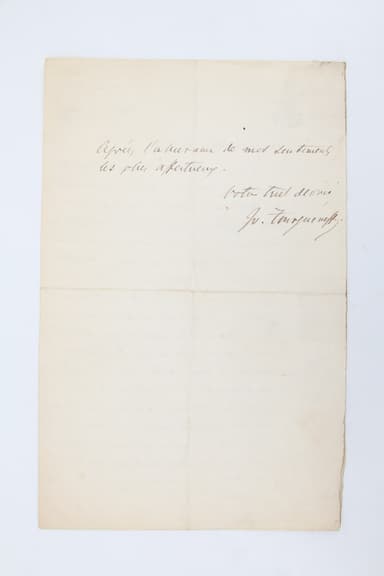 Agréez l'assurance de mes sentiments
les plus affectueux.
Votre tout dévoué
Iv. Tourguéneff